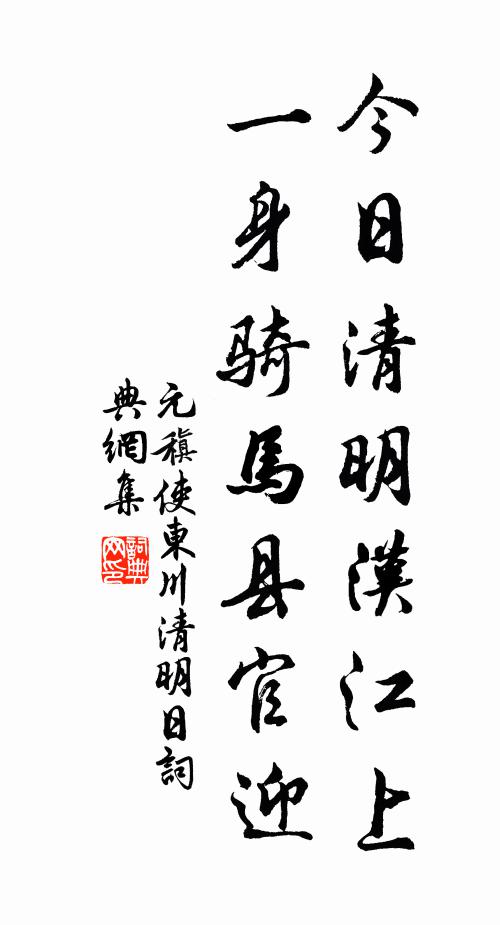 今日清明漢江上
一身騎馬县官迎
元稹使東川清明日詞
典網集
詞典
网印